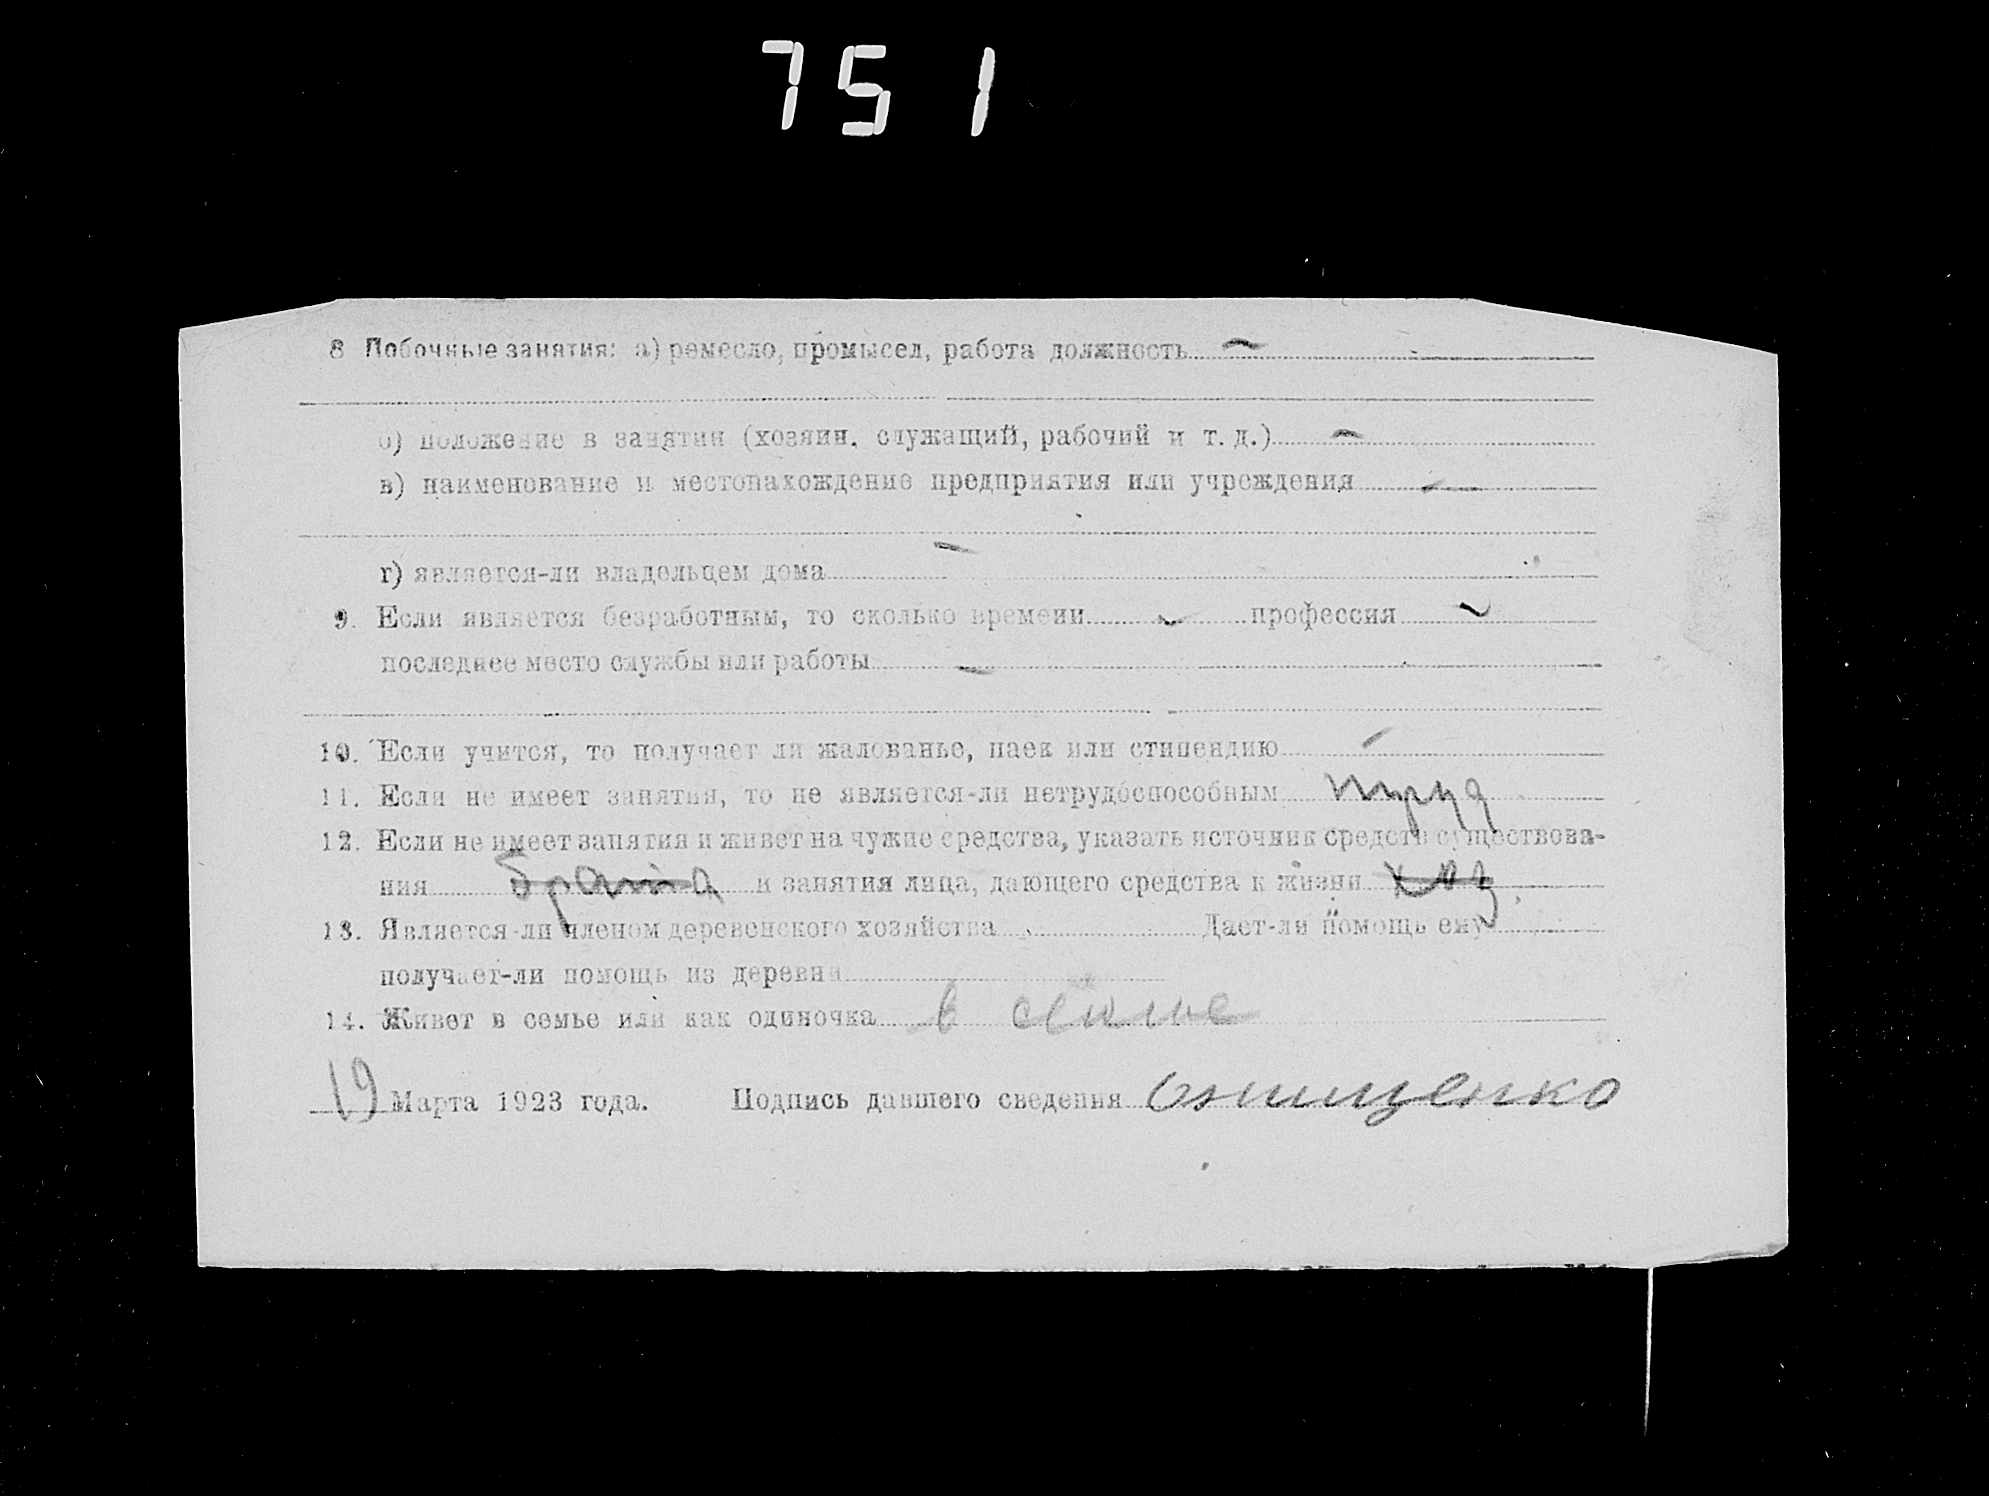 751
8 Побочные занятия: а) ремесло, промысел, работа должность —
б) положение в занятии (хозяин. служащий, рабочий и т. д.) —
в) наименование и местонахождение предприятия или учреждения —
г) является-ли владельцем дома —
9. Если является безработным, то сколько времени — профессия —
последнее место службы или работы —
10. Если учится, то получает ли жалованье, паек или стипендию —
11. Если не имеет занятия, то не является-ли нетрудоспособным
12. Если не имеет занятия и живет на чужие средства, указать источник средств существова-
ния брата и занятия лица, дающего средства к жизни хоз
13. Является-ли членом деревенского хозяйства Дает-ли помощь ему
получает-ли помощь из деревни
14. Живет в семье или как одиночка в семье
19 Марта 1923 года. Подпись давшего сведения Онищенко